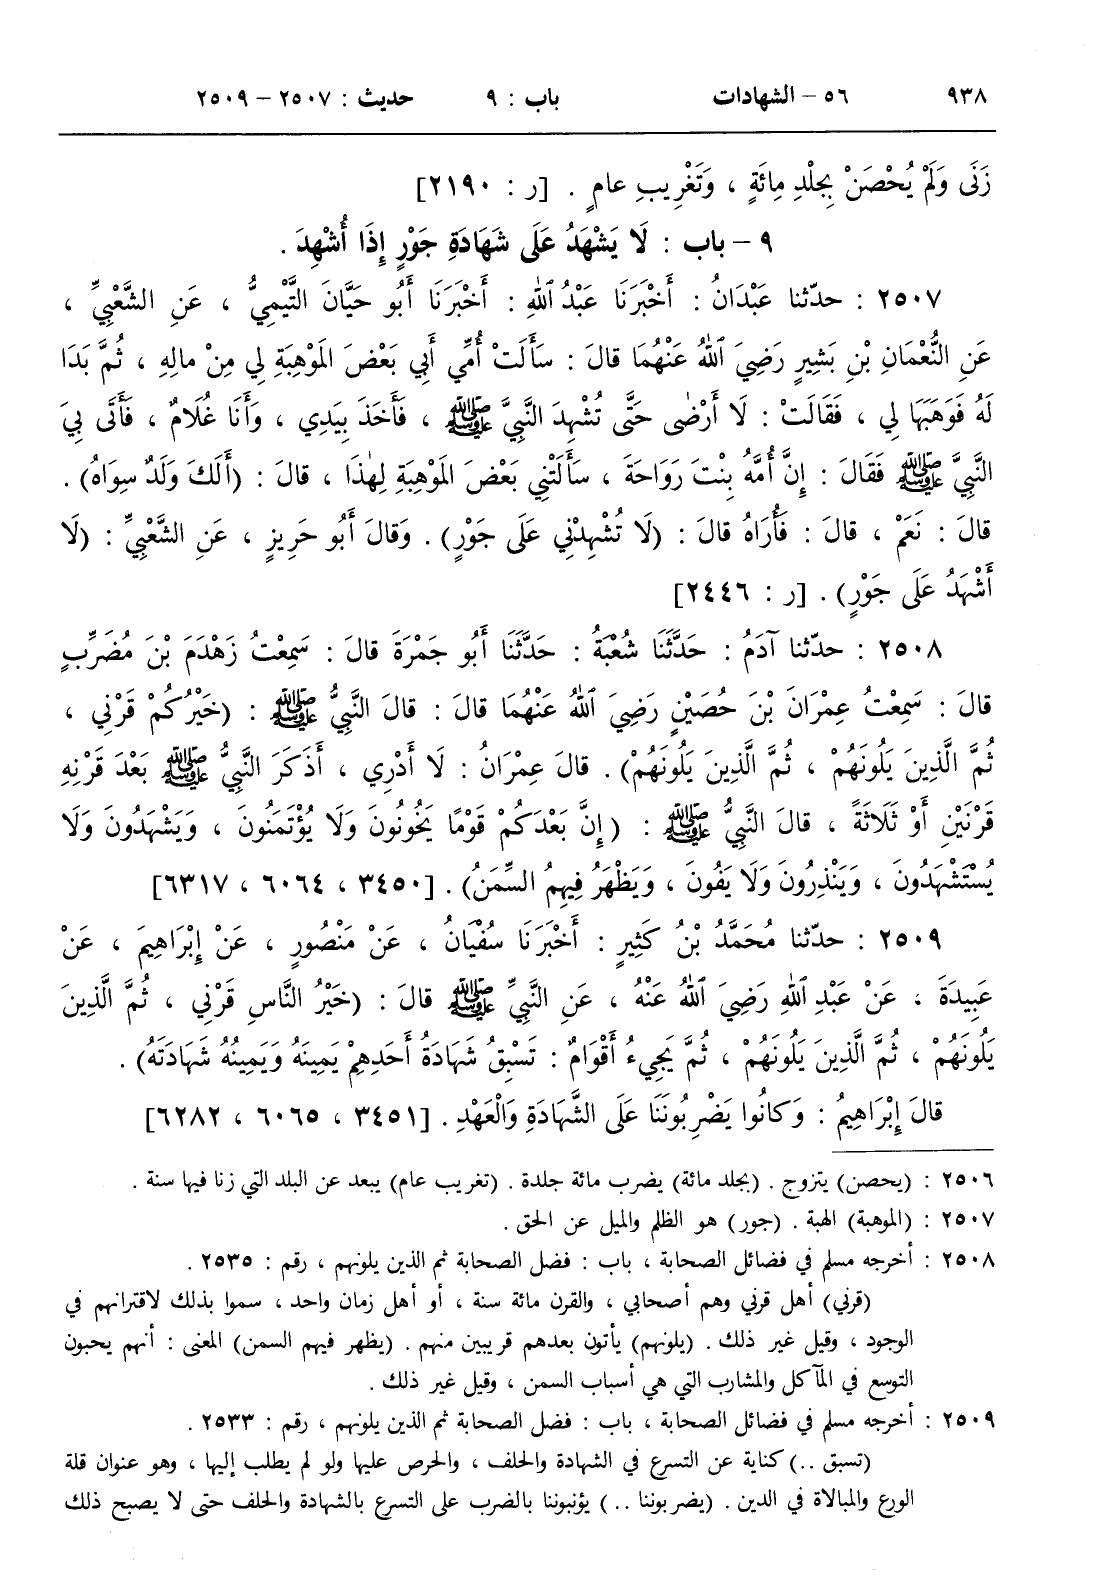 ٩٣٨ ٥٦ – الشهادات باب : ٩ حديث : ٢٥٠٧ – ٢٥٠٩
زَنَى وَلَمْ يُحْصَنْ بِجَلْدِ مِائَةٍ ، وَتَغْرِيبِ عامٍ . [ر : ٢١٩٠]
٩ – باب : لَا يَشْهَدُ عَلَى شَهَادَةِ جَوْرٍ إِذَا أُشْهِدَ .
٢٥٠٧ : حدّثنا عَبْدَانُ : أَخْبَرَنَا عَبْدُ اللهِ : أَخْبَرَنَا أَبُو حَيَّانَ التَّيْمِيُّ ، عَنِ الشَّعْبِيِّ ،
عَنِ النُّعْمَانِ بْنِ بَشِيرٍ رَضِيَ ٱللهُ عَنْهُمَا قالَ : سَأَلَتْ أُمِّي أَبِي بَعْضَ المَوْهِبَةِ لِي مِنْ مالِهِ ، ثُمَّ بَدَا
لَهُ فَوَهَبَهَا لِي ، فَقَالَتْ : لَا أَرْضٰى حَتَّى تُشْهِدَ النَّبِيَّ ﷺ ، فَأَخَذَ بِيَدِي ، وَأَنَا غُلَامٌ ، فَأَتَى بِيَ
النَّبِيَّ ﷺ فَقَالَ : إِنَّ أُمَّهُ بِنْتَ رَوَاحَةَ ، سَأَلَتْنِي بَعْضَ المَوْهِبَةِ لِهٰذَا ، قالَ : (أَلَكَ وَلَدٌ سِوَاهُ) .
قالَ : نَعَمْ ، قالَ : فَأُرَاهُ قالَ : (لَا تُشْهِدْنِي عَلَى جَوْرٍ) . وَقالَ أَبُو حَرِيزٍ ، عَنِ الشَّعْبِيِّ : (لَا
أَشْهَدُ عَلَى جَوْرٍ) . [ر : ٢٤٤٦]
٢٥٠٨ : حدّثنا آدَمُ : حَدَّثَنَا شُعْبَةُ : حَدَّثَنَا أَبُو جَمْرَةَ قالَ : سَمِعْتُ زَهْدَمَ بْنَ مُضَرِّبٍ
قالَ : سَمِعْتُ عِمْرَانَ بْنَ حُصَيْنٍ رَضِيَ ٱللهُ عَنْهُمَا قالَ : قالَ النَّبِيُّ ﷺ : (خَيْرُكُمْ قَرْنِي ،
ثُمَّ الَّذِينَ يَلُونَهُمْ ، ثُمَّ الَّذِينَ يَلُونَهُمْ) . قالَ عِمْرَانُ : لَا أَدْرِي ، أَذَكَرَ النَّبِيُّ ﷺ بَعْدَ قَرْنِهِ
قَرْنَيْنِ أَوْ ثَلَاثَةً ، قالَ النَّبِيُّ ﷺ : (إِنَّ بَعْدَكُمْ قَوْمًا يَخُونُونَ وَلَا يُؤْتَمَنُونَ ، وَيَشْهَدُونَ وَلَا
يُسْتَشْهَدُونَ ، وَيَنْذِرُونَ وَلَا يَفُونَ ، وَيَظْهَرُ فِيهِمُ السِّمَنُ) . [٣٤٥٠ ، ٦٠٦٤ ، ٦٣١٧]
٢٥٠٩ : حدّثنا مُحَمَّدُ بْنُ كَثِيرٍ : أَخْبَرَنَا سُفْيَانُ ، عَنْ مَنْصُورٍ ، عَنْ إِبْرَاهِيمَ ، عَنْ
عَبِيدَةَ ، عَنْ عَبْدِ اللهِ رَضِيَ ٱللهُ عَنْهُ ، عَنِ النَّبِيِّ ﷺ قالَ : (خَيْرُ النَّاسِ قَرْنِي ، ثُمَّ الَّذِينَ
يَلُونَهُمْ ، ثُمَّ الَّذِينَ يَلُونَهُمْ ، ثُمَّ يَجِيءُ أَقْوَامٌ : تَسْبِقُ شَهَادَةُ أَحَدِهِمْ يَمِينَهُ وَيَمِينُهُ شَهَادَتَهُ) .
قالَ إِبْرَاهِيمُ : وَكانُوا يَضْرِبُونَنَا عَلَى الشَّهَادَةِ وَالْعَهْدِ . [٣٤٥١ ، ٦٠٦٥ ، ٦٢٨٢]
٢٥٠٦ : (يحصن) يتزوج . (بجلد مائة) يضرب مائة جلدة . (تغريب عام) يبعد عن البلد التي زنا فيها سنة .
٢٥٠٧ : (الموهبة) الهبة . (جور) هو الظلم والميل عن الحق .
٢٥٠٨ : أخرجه مسلم في فضائل الصحابة ، باب : فضل الصحابة ثم الذين يلونهم ، رقم : ٢٥٣٥ .
(قرني) أهل قرني وهم أصحابي ، والقرن مائة سنة ، أو أهل زمان واحد ، سموا بذلك لاقترانهم في
الوجود ، وقيل غير ذلك . (يلونهم) يأتون بعدهم قريبين منهم . (يظهر فيهم السمن) المعنى : أنهم يحبون
التوسع في المآكل والمشارب التي هي أسباب السمن ، وقيل غير ذلك .
٢٥٠٩ : أخرجه مسلم في فضائل الصحابة ، باب : فضل الصحابة ثم الذين يلونهم ، رقم : ٢٥٣٣ .
(تسبق ..) كناية عن التسرع في الشهادة والحلف ، والحرص عليها ولو لم يطلب إليها ، وهو عنوان قلة
الورع والمبالاة في الدين . (يضربوننا ..) يؤنبوننا بالضرب على التسرع بالشهادة والحلف حتى لا يصبح ذلك